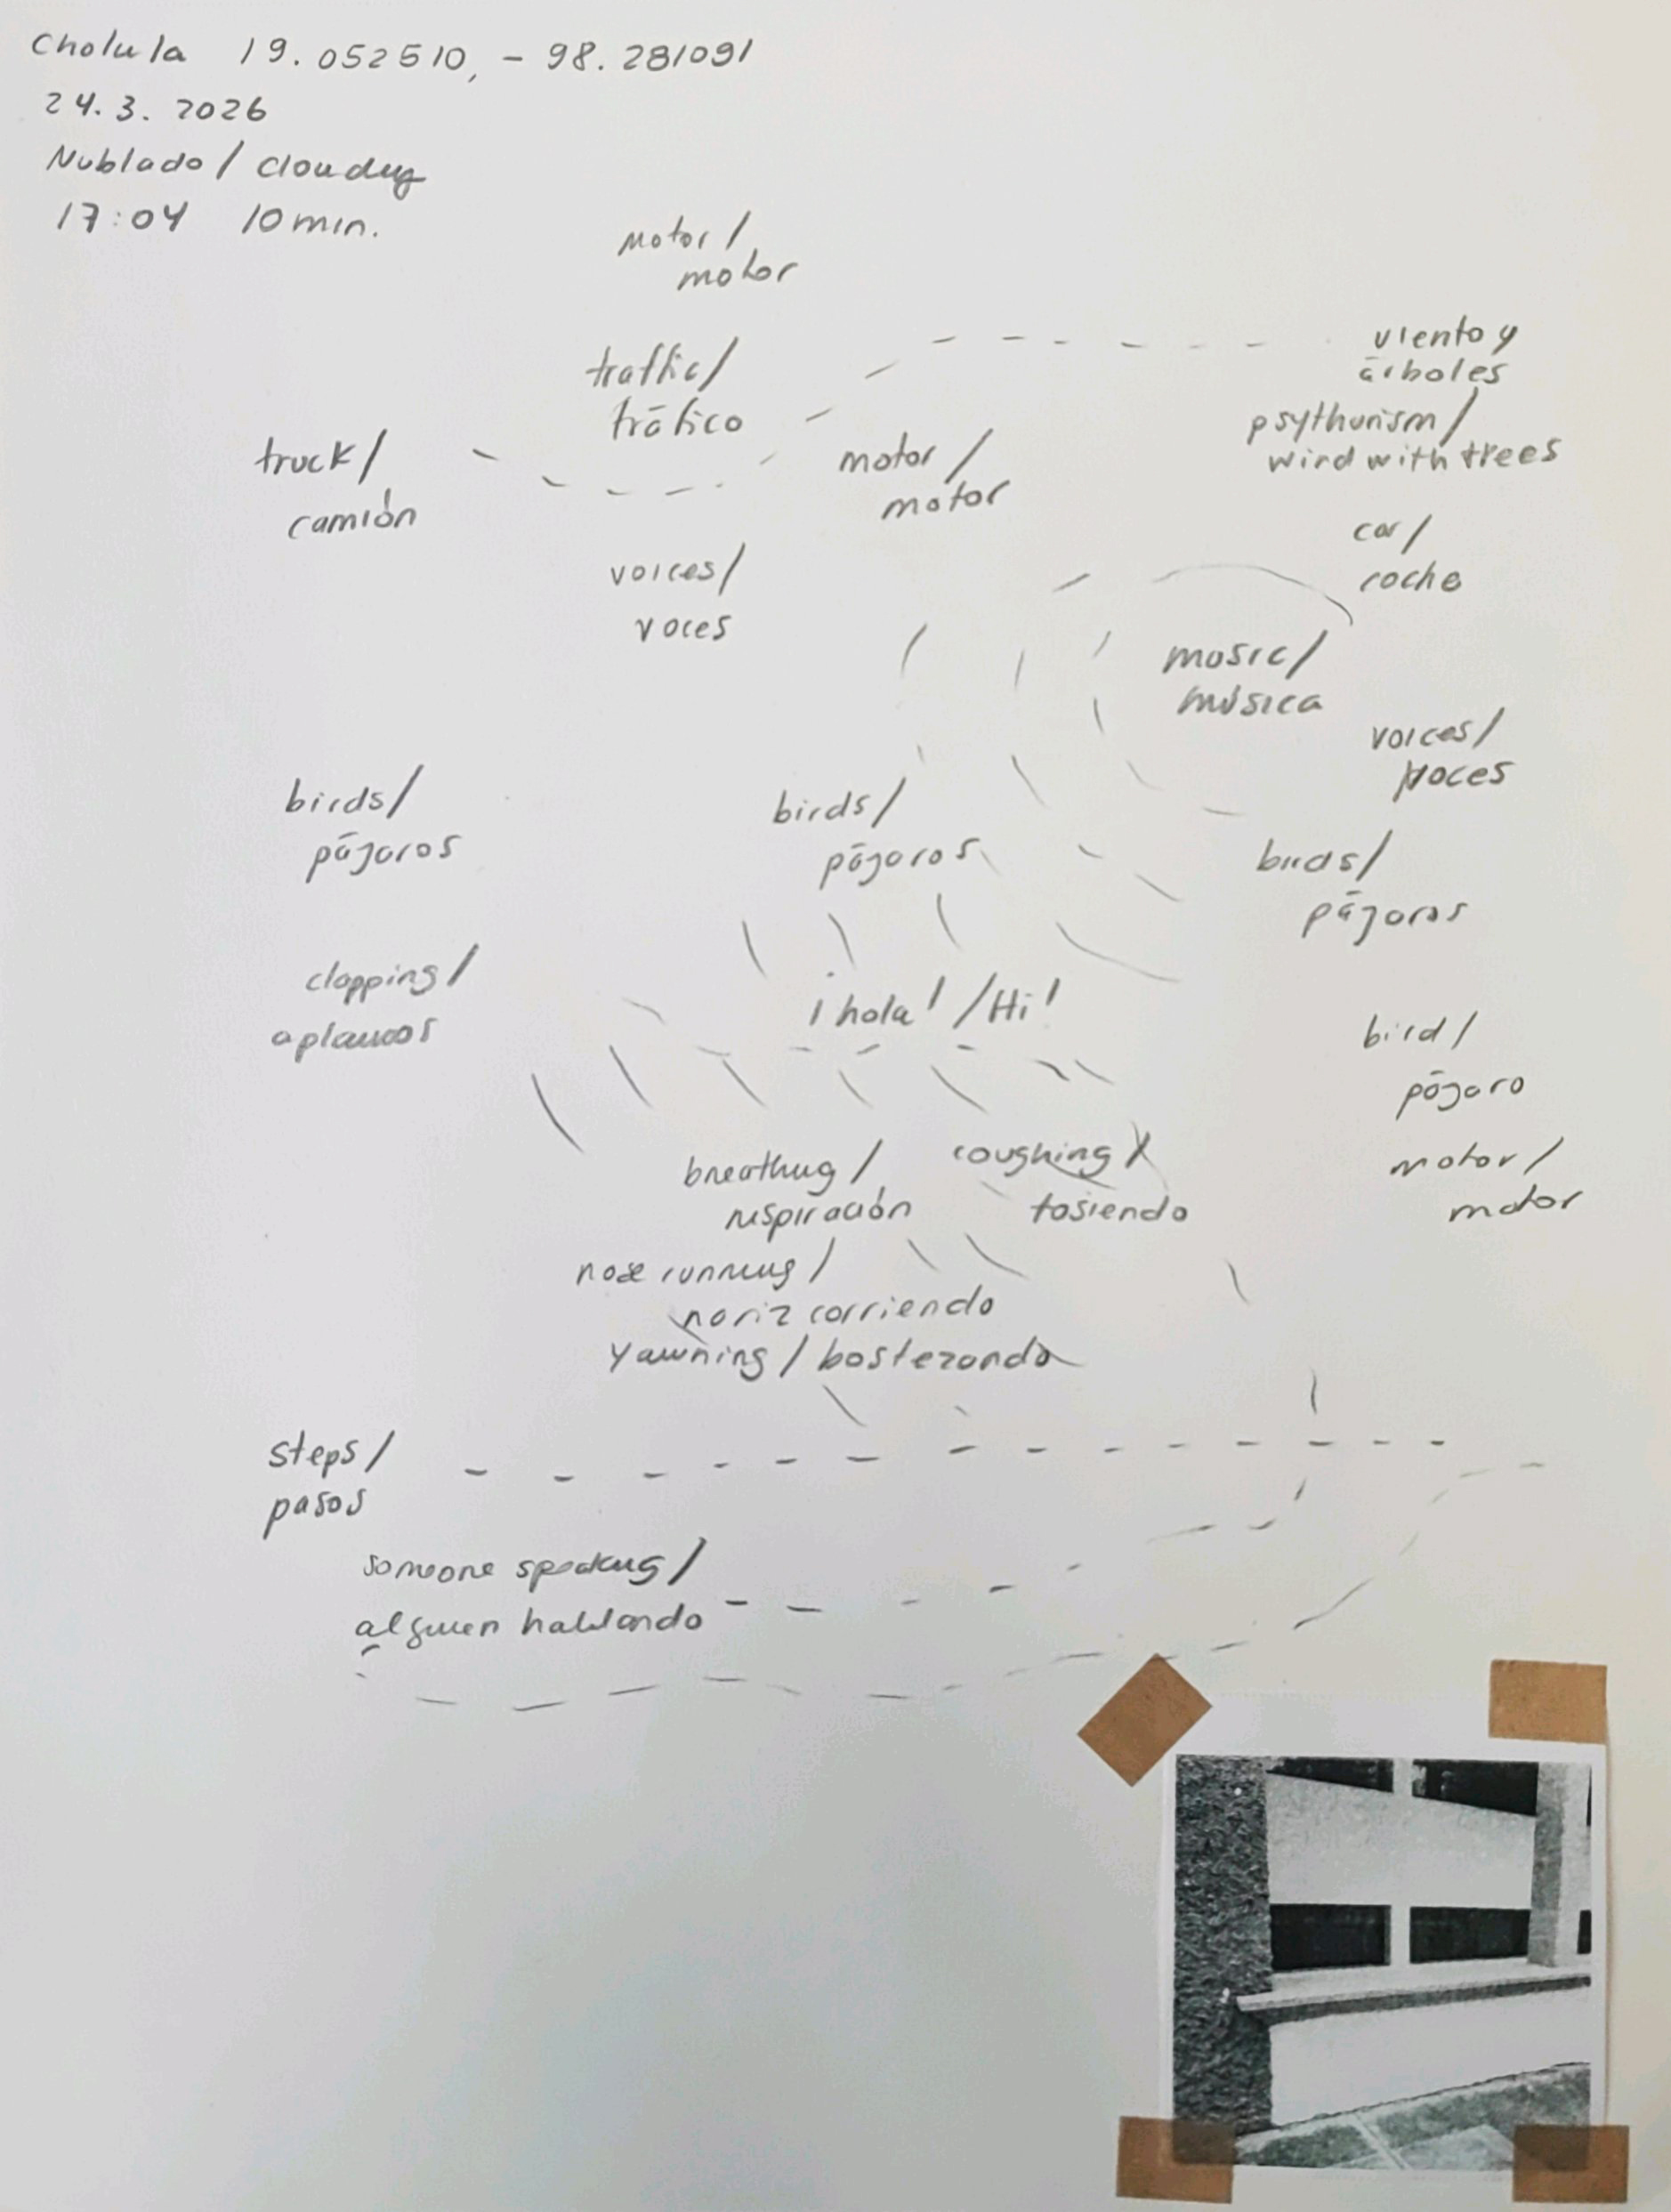 Cholula 19.052510, - 98.281091
24.3. 2026
Nublado / cloudy
17:04 10 min.
motor /
motor
traffic /
tráfico
viento y
árboles
psythurism /
wind with trees
truck /
camión
motor /
motor
car /
coche
voices /
voces
music /
música
voices /
voces
birds /
pájaros
birds /
pájaros
birds /
pájaros
clapping /
aplausos
¡hola! / Hi!
bird /
pájaro
breathing /
respiración
coughing /
tosiendo
motor /
motor
nose running /
nariz corriendo
yawning / bostezando
steps /
pasos
someone speaking /
alguien hablando